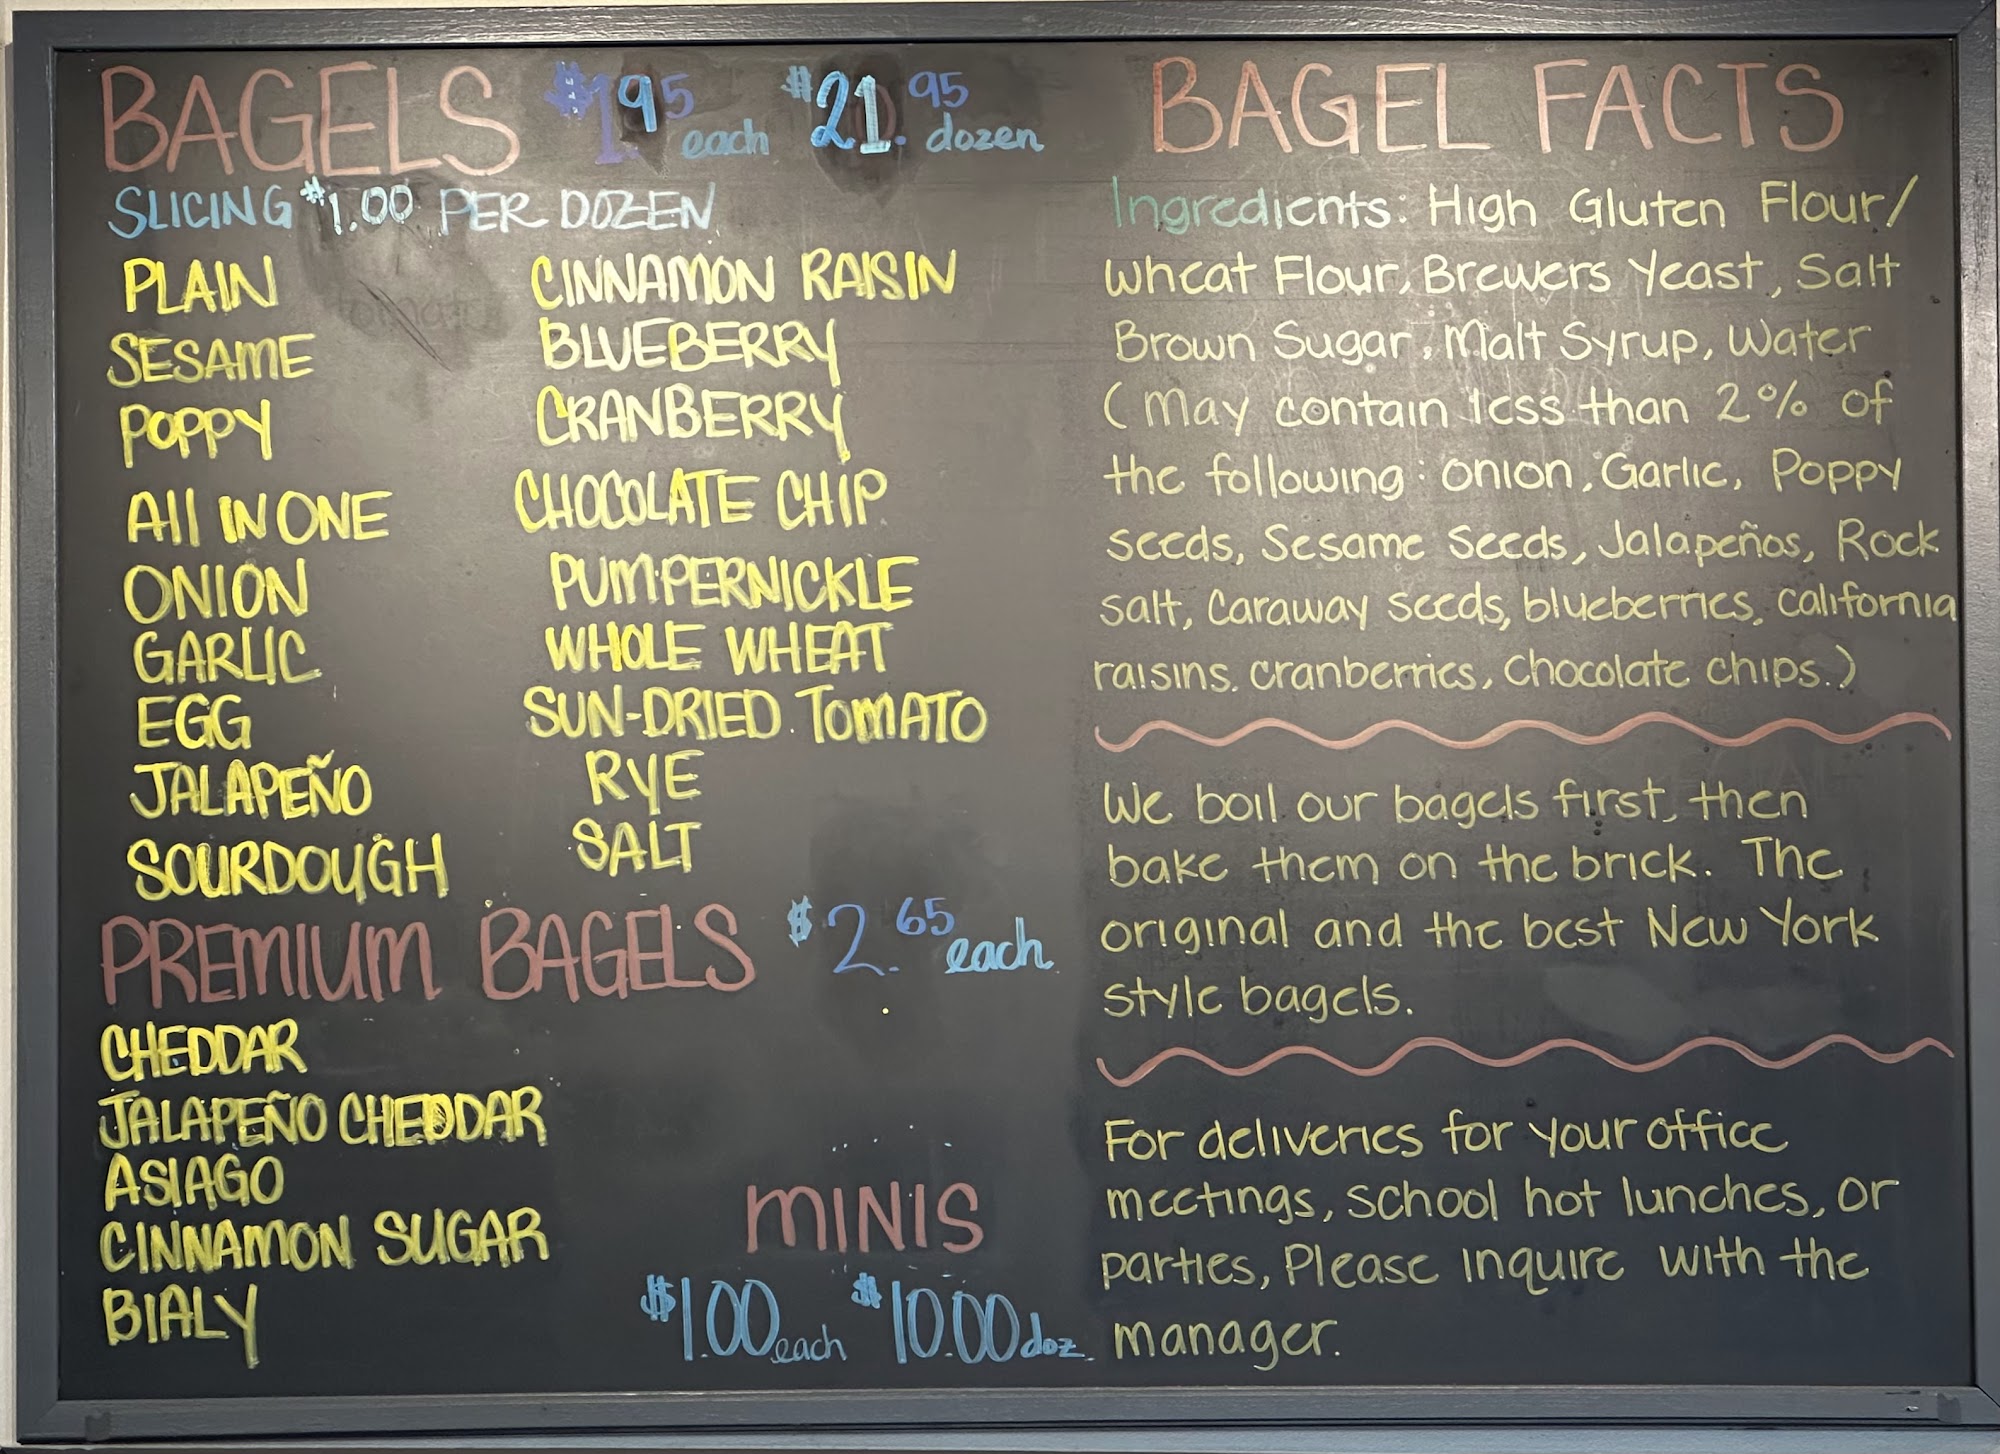 BAGELS $1.95 each $21.95 dozen
SLICING $1.00 PER DOZEN
PLAIN
SESAME
POPPY
All IN ONE
ONION
GARLIC
EGG
JALAPEÑO
SOURDOUGH
CINNAMON RAISIN
BLUEBERRY
CRANBERRY
CHOCOLATE CHIP
PUMPERNICKLE
WHOLE WHEAT
SUN-DRIED TOMATO
RYE
SALT
PREMIUM BAGELS $2.65 each
CHEDDAR
JALAPEÑO CHEDDAR
ASIAGO
CINNAMON SUGAR
BIALY
MINIS
$1.00 each $10.00 doz
BAGEL FACTS
Ingredients: High Gluten Flour/
Wheat Flour, Brewers Yeast, Salt
Brown Sugar, Malt Syrup, Water
(May contain less than 2% of
the following: Onion, Garlic, Poppy
seeds, Sesame Seeds, Jalapeños, Rock
salt, Caraway seeds, blueberries, California
raisins. cranberries, Chocolate chips.)
We boil our bagels first, then
bake them on the brick. The
original and the best New York
style bagels.
For deliveries for your office
meetings, school hot lunches, or
parties, Please inquire with the
manager.